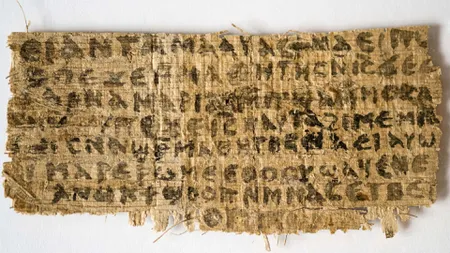 ⲉⲓ ⲁⲛ ⲧⲁⲙⲁⲁⲩ ⲁⲥϯ ⲛⲁⲉⲓ
ⲡⲉϫⲉ ⲙⲙⲁⲑⲏⲧⲏⲥ ⲛⲓⲥ ϫⲉ
ⲁⲣⲛⲁ ⲙⲁⲣⲓⲁⲙ ⲙⲡϣⲁ ⲙⲙⲟⲥ ⲁⲛ
ⲡⲉϫⲉ ⲓⲥ ⲛⲁⲩ ⲧⲁϩⲓⲙⲉ ⲙⲛ
ⲥⲛⲁϣⲣⲙⲁⲑⲏⲧⲏⲥ ⲛⲁⲉⲓ ⲁⲩⲱ
ⲙⲁⲣⲉⲣⲱⲙⲉ ⲉⲑⲟⲟⲩ ϣⲁϥⲉ ⲛⲉ
ⲁⲛⲟⲕ ϯϣⲟⲟⲡ ⲛⲙⲙⲁⲥ ⲉⲧⲃⲉ